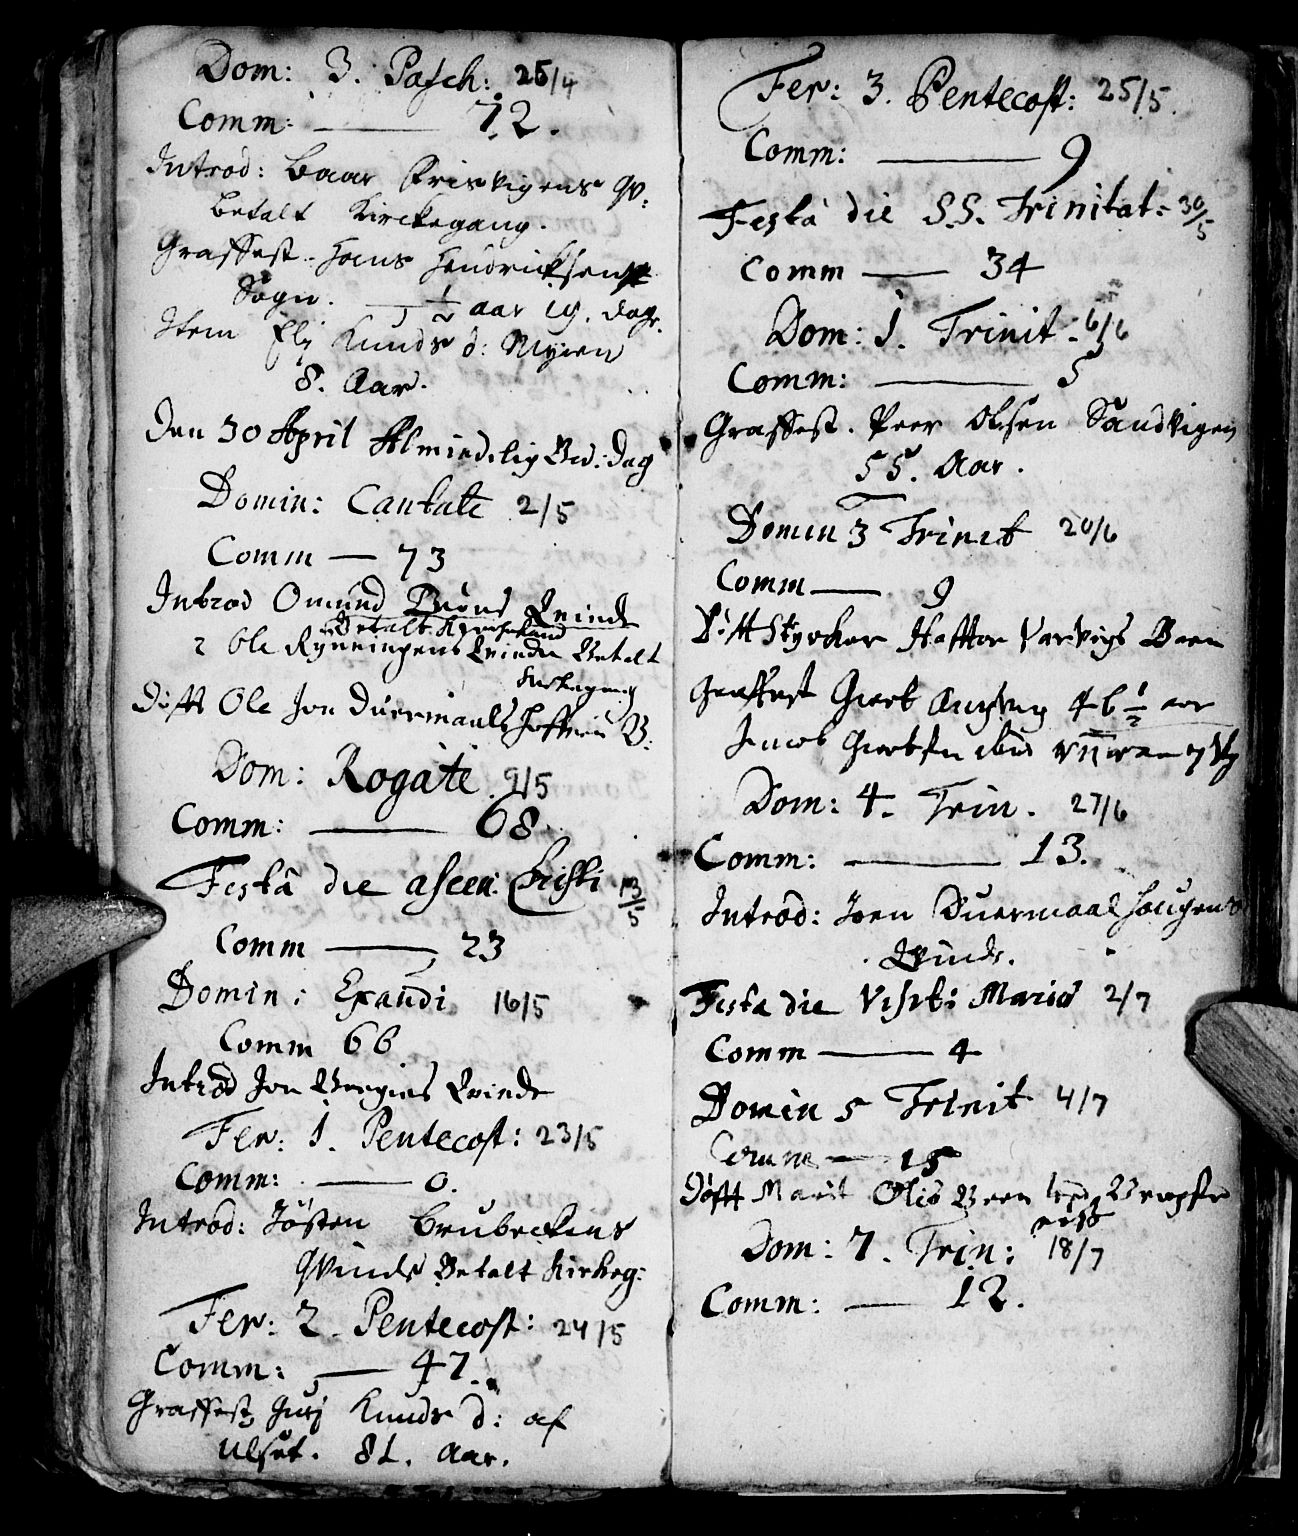 Dom: 3. Pasch: 25/4
Comm: — 72.
Introd: Baar Krisvigens qv:
betalt Kirckegang.
Graffest. Hans Hendricksens
Sogn. — ½ aar 19. dage.
Item Elj Knuds d: Myren
8. Aar.
Den 30 April Almindelig Bed: dag
Domin: Cantate 2/5
Comm — 73
Introd Omund Biørns Qvinde
Betalt
2 Ole Rynningens Qvinde Betalt
Kirkegang
Døftt Ole Jon Duermaals B:
Dom: Rogate. 9/5
Comm: — 68.
Festa die ascen: Christi 13/5
Comm — 23
Domin: Exaudi 16/5
Comm 66
Introd Jon Qvinde
Fer: 1. Pentecost: 23/5
Comm: — 0.
Introd: Jøsten Brubeckens
Qvinde Betalt Kirkeg:
Fer: 2. Pentecost: 24/5
Comm: — 47.
Graffest Gurj Knuds d: af
Ulset. 81. Aar.
Fer: 3. Pentecost: 25/5.
Comm: — 9
Festa die S.S. Trinitat: 30/5
Comm — 34
Dom: 1. Trinit: 6/6
Comm: — 5
Graffest. Peer Olsen Sandvigen
55. Aar.
Domin 3 Trinit 20/6
Comm — 9
Døftt Styrker Barn
Graffest 46½ aar
Jacob
Dom: 4. Trin. 27/6
Comm: — 13.
Introd: Joen Duermaal haugens
Qvinde.
Festa die Visit: Mariæ 2/7
Comm — 4
Domin 5 Trinit 4/7
Comm — 15
Døftt Marit Olis Barn
Dom: 7. Trin: 18/7
Comm: — 12.